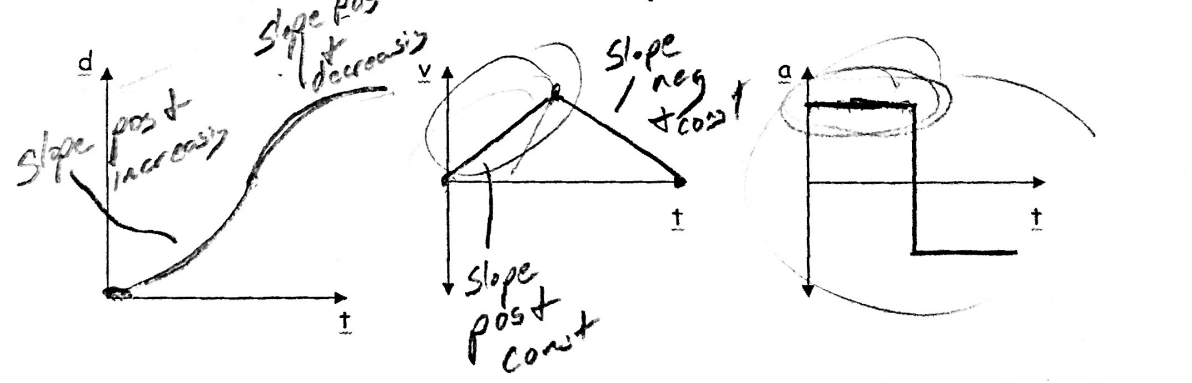 d
Slope pos
+
decreasing
Slope pos +
increasing
t
v
Slope
neg
+ const
t
Slope
pos +
const
a
t